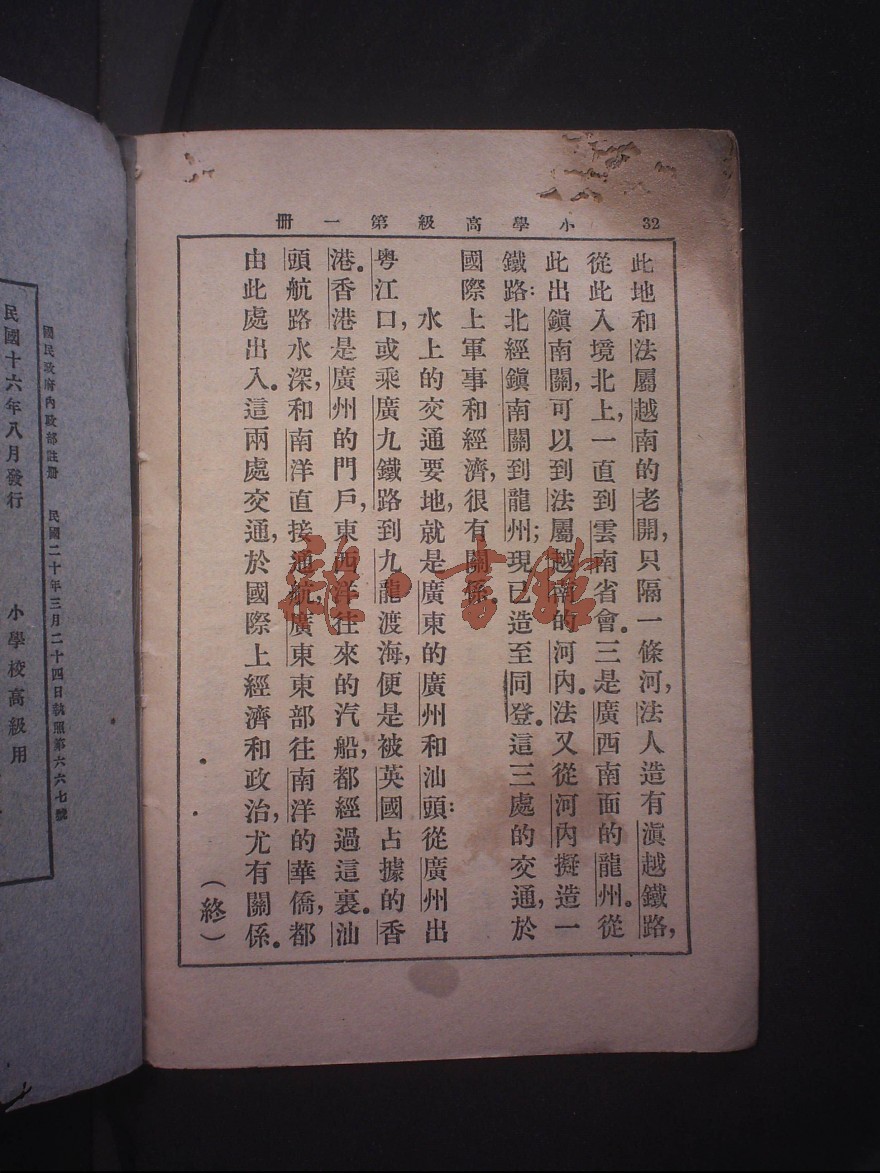 32
小學高級第一册
此地和法屬越南的老開，只隔一條河，法人造有滇越鐵路，
從此入境北上，一直到雲南省會。三是廣西南面的龍州。從
此出鎮南關，可以到法屬越南的河內。法又從河內擬造一
鐵路：北經鎮南關到龍州；現已造至同登。這三處的交通，於
國際上軍事和經濟，很有關係。
水上的交通要地，就是廣東的廣州和汕頭：從廣州出
粤江口，或乘廣九鐵路到九龍渡海，便是被英國占據的香
港。香港是廣州的門戶，東西洋往來的汽船，都經過這裏。汕
頭航路水深，和南洋直接通航，廣東東部往南洋的華僑，都
由此處出入。這兩處交通，於國際上經濟和政治，尤有關係。
（終）
國民政府內政部註册　民國二十年三月二十四日執照第六六七號
民國十六年八月發行
小學校高級用